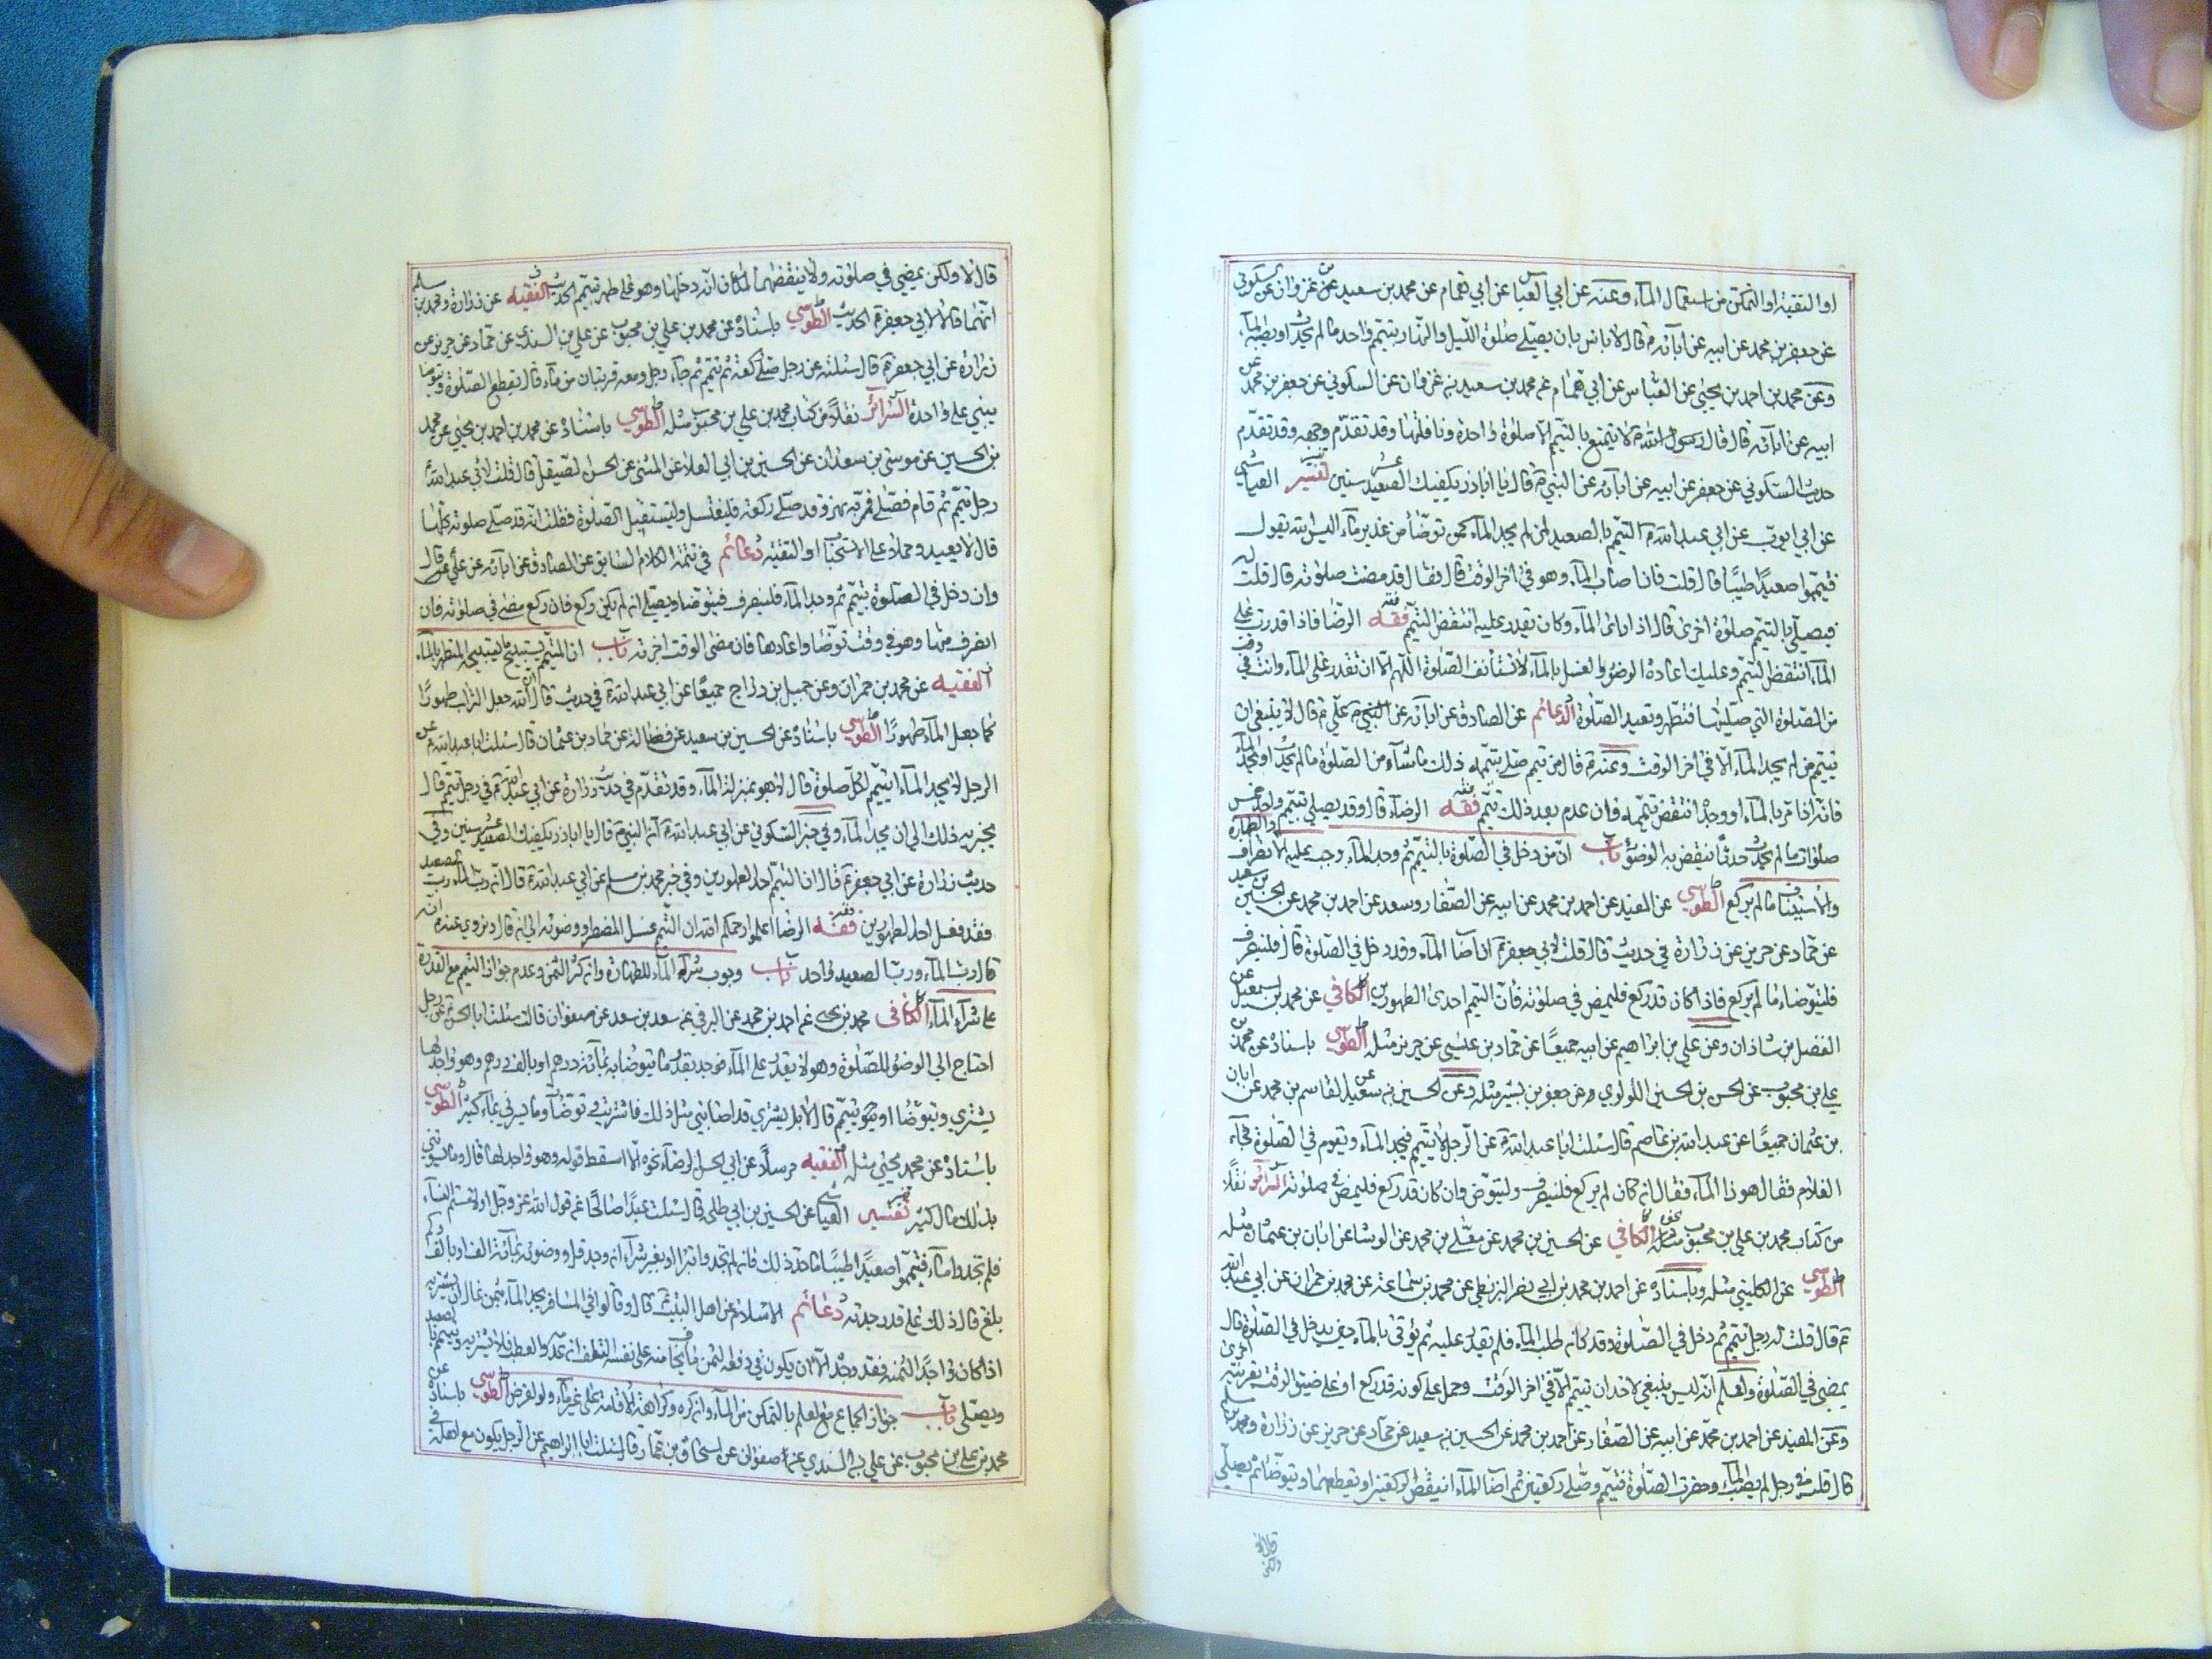 او التقية او التمكن من استعمال الماء وعنه عن ابي العباس عن ابي همام عن محمد بن سعيد عن غزوان عن السكوني
عن جعفر بن محمد عن ابيه عن آبائه ع قال لا باس بان يصلي صلوة الليل والنهار بتيمم واحد ما لم يحدث او يصب الماء
وعن محمد بن احمد بن يحيى عن العباس عن ابي همام عن محمد بن سعيد بن غزوان عن السكوني عن جعفر بن محمد عن
ابيه عن آبائه قال قال رسول الله ص لا يتمتع بالتيمم الا صلوة واحدة ونافلتها وقد تقدم وجهه وقد تقدم
حديث السكوني عن جعفر عن ابيه عن آبائه عن النبي ص قال يا اباذر يكفيك الصعيد عشر سنين تفسير العياشي
عن ابي ايوب عن ابي عبد الله ع التيمم بالصعيد لمن لم يجد الماء كمن توضأ من غدير ماء اليس الله يقول
فتيمموا صعيدا طيبا قال قلت فان اصاب الماء وهو في اخر الوقت قال فقال قد مضت صلوته قال قلت له
فيصلي بالتيمم صلوة اخرى قال اذا راى الماء وكان يقدر عليه انتقض التيمم فقه الرضا فاذا قدرت على
الماء انتقض التيمم وعليك اعادة الوضوء والغسل بالماء لما تستأنف الصلوة اللهم الا ان تقدر على الماء وانت في وقت
من الصلوة التي صليتها فتطهر وتعيد الصلوة الدعائم عن الصادق عن آبائه عن النبي ص علي ع قال لا ينبغي ان
يتيمم من لم يجد الماء الا في اخر الوقت وعنه ع قال من تيمم صلى بتيممه ذلك ما شاء من الصلوة ما لم يحدث او يجد الماء
فانه اذا مر بالماء او وجده انتقض تيممه فان عدم بعد ذلك تيمم فقه الرضاء قال وقد يصلي بتيمم واحد خمس
صلوات ما لم يحدث حدثا ينتقض به الوضوء باب ان من دخل في الصلوة بالتيمم ثم وجد الماء وجب عليه الانصراف والطهارة
والاستيناف ما لم يركع الطوسي عن المفيد عن احمد بن محمد عن ابيه عن الصفار وسعد عن احمد بن محمد عن الحسين بن سعيد
عن حماد عن حريز عن زرارة في حديث قال قلت لابي جعفر ع ان اصاب الماء وقد دخل في الصلوة قال فلينصرف
فليتوضاء ما لم يركع فاذا كان قد ركع فليمض في صلوته فان التيمم احدى الطهورين الكافي عن محمد بن اسمعيل عن
الفضل بن شاذان وعن علي بن ابراهيم عن ابيه جميعا عن حماد بن عيسى عن حريز مثله الطوسي باسناده عن محمد بن
علي بن محبوب عن الحسن بن الحسين اللؤلؤي عن جعفر بن بشير مثله وعن الحسين بن سعيد عن القاسم بن محمد عن ابان
بن عثمان جميعا عن عبد الله بن عاصم قال سئلت ابا عبد الله ع عن الرجل لا يتيمم فيجد الماء ويقوم في الصلوة فجاء
الغلام فقال هوذا الماء فقال ان كان لم يركع فلينصرف وليتوض وان كان قد ركع فليمض في صلوته السرائر نقلا
من كتاب محمد بن علي بن محبوب مثله الكافي عن الحسين بن محمد عن معلى بن محمد عن الوشا عن ابان بن عثمان مثله
الطوسي عن الكليني مثله وباسناده عن احمد بن محمد بن ابي نصر البزنطي عن محمد بن سماعة عن محمد بن حمران عن ابي عبد الله
ع قال قلت له رجل تيمم ثم دخل في الصلوة وقد كان طلب الماء فلم يقدر عليه ثم يؤتى بالماء حين يدخل في الصلوة قال
يمضي في الصلوة واعلم انه ليس ينبغي لاحد ان يتيمم الا في اخر الوقت وحمل على كونه قد ركع او على ضيق الوقت بقرينة اخره
وعن المفيد عن احمد بن محمد عن ابيه عن الصفار عن احمد بن محمد عن الحسين بن سعيد عن حماد عن حريز عن زرارة ومحمد بن مسلم
قال قلت في رجل لم يصب الماء وحضرت الصلوة فتيمم وصلى ركعتين ثم اصاب الماء اينقض الركعتين او يقطعهما ويتوضا ثم يصلي
قال لا
ولكن
قال لا ولكن يمضي في صلوته ولا ينقضهما لمكان انه دخلها وهو على طهر بتيمم الحديث الفقيه عن زرارة ومحمد بن مسلم
انهما قالا لابي جعفر ع الحديث الطوسي باسناده عن محمد بن علي بن محبوب عن علي بن السندي عن حماد عن حريز عن
زرارة عن ابي جعفر ع قال سئلته عن رجل صلى ركعة ثم تيمم ثم جاء رجل ومعه قربتان من ماء قال يقطع الصلوة ويتوضا
يبني على واحدة السرائر نقلا من كتاب محمد بن علي بن محبوب مثله الطوسي باسناده عن محمد بن احمد بن يحيى عن محمد
بن الحسين عن موسى بن سعدان عن الحسين بن ابي العلا عن المثنى عن الحسن الصيقل قال قلت لابي عبد الله ع
رجل تيمم ثم قام فصلى فمر به نهر وقد صلى ركعة فليغتسل وليستقبل الصلوة فقلت انه قد صلى صلوته كلها
قال لا يعيد وحملا على الاستحباب او التقيه دعائم في تتمة الكلام السابق عن الصادق عن آبائه عن علي ع قال
وان دخل في الصلوة بتيمم ثم وجد الماء فلينصرف فيتوضا ويصلي ان لم يكن ركع فان ركع مضى في صلوته فان
انصرف منها وهو في وقت توضا واعادها فان مضى الوقت اجزته باب ان المتيمم يستبيح ما يستبيحه المتطهر بالماء
الفقيه عن محمد بن حمران وعن جميل بن دراج جميعا عن ابي عبد الله ع في حديث قال ان الله جعل التراب طهورا
كما جعل الماء طهورا الطوسي باسناده عن الحسين بن سعيد عن فضالة عن حماد بن عثمان قال سئلت ابا عبد الله ع عن
الرجل لا يجد الماء ايتيمم لكل صلوة قال لا هو بمنزلة الماء وقد تقدم في حديث زرارة عن ابي عبد الله ع في رجل تيمم قال
يجزيه ذلك الى ان يجد الماء وفي خبر السكوني عن ابي عبد الله ع ان النبي ص قال يا اباذر يكفيك الصعيد عشر سنين وفي
حديث زرارة عن ابي جعفر ع قال ان التيمم احد الطهورين وفي خبر محمد بن مسلم عن ابي عبد الله ع قال ان رب الماء رب الصعيد
فقد فعل احد الطهورين فقه الرضا اعلموا رحمكم الله ان التيمم غسل المضطر ووضوئه الى ان قال ونروي عنه ع انه
قال رب الماء ورب الصعيد واحد باب وجوب شراء الماء للطهارة وان كثر الثمن وعدم جواز التيمم مع القدرة
على شراء الماء الكافي محمد بن يحيى عن احمد بن محمد عن البرقي عن سعد بن سعد عن صفوان قال سئلت ابا الحسن ع عن رجل
احتاج الى الوضوء للصلوة وهو لا يقدر على الماء فوجد بقدر ما يتوضا به بمائة درهم او بالف درهم وهو واجد لها
يشتري ويتوضا او يتيمم قال لا بل يشتري قد اصابني مثل ذلك فاشتريت وتوضأت وما يسرني بماء كثير الطوسي
باسناده عن محمد يحيى مثله الفقيه مرسلا عن ابي الحسن الرضاء نحوه الا اسقط قوله وهو واجد لها قال وما يسوئني
بذلك مال كثير تفسير العياشي عن الحسين بن ابي طلحة قال سئلت عبدا صالحا عن قول الله عز وجل او لامستم النساء
فلم تجدوا ماء فتيمموا صعيدا طيبا ما حد ذلك فان لم تجدوا بشرا او بغير شراء ان وجد قدر وضوئه بمائة الف او بالف وكم
بلغ قال ذلك على قدر جدته دعائم الاسلام عن اهل البيت ع قال وقالوا في المسافر يجد الماء بثمن غال ان يشتريه
اذا كان واجدا لثمنه فقد وجده الا ان يكون في دفعه الثمن ما يخاف منه على نفسه التلف ان عدمه والعطب فلا يشتريه ويتيمم بالصعيد
ويصلي باب جواز الجماع مع العلم بالتمكن من الماء وان كره وكراهة الاقامة على غير ماء ولو لغرض الطوسي باسناده عن
محمد بن علي بن محبوب عن علي بن السندي عن صفوان عن اسحاق بن عمار قال سئلت ابا ابراهيم عن الرجل يكون مع اهله في